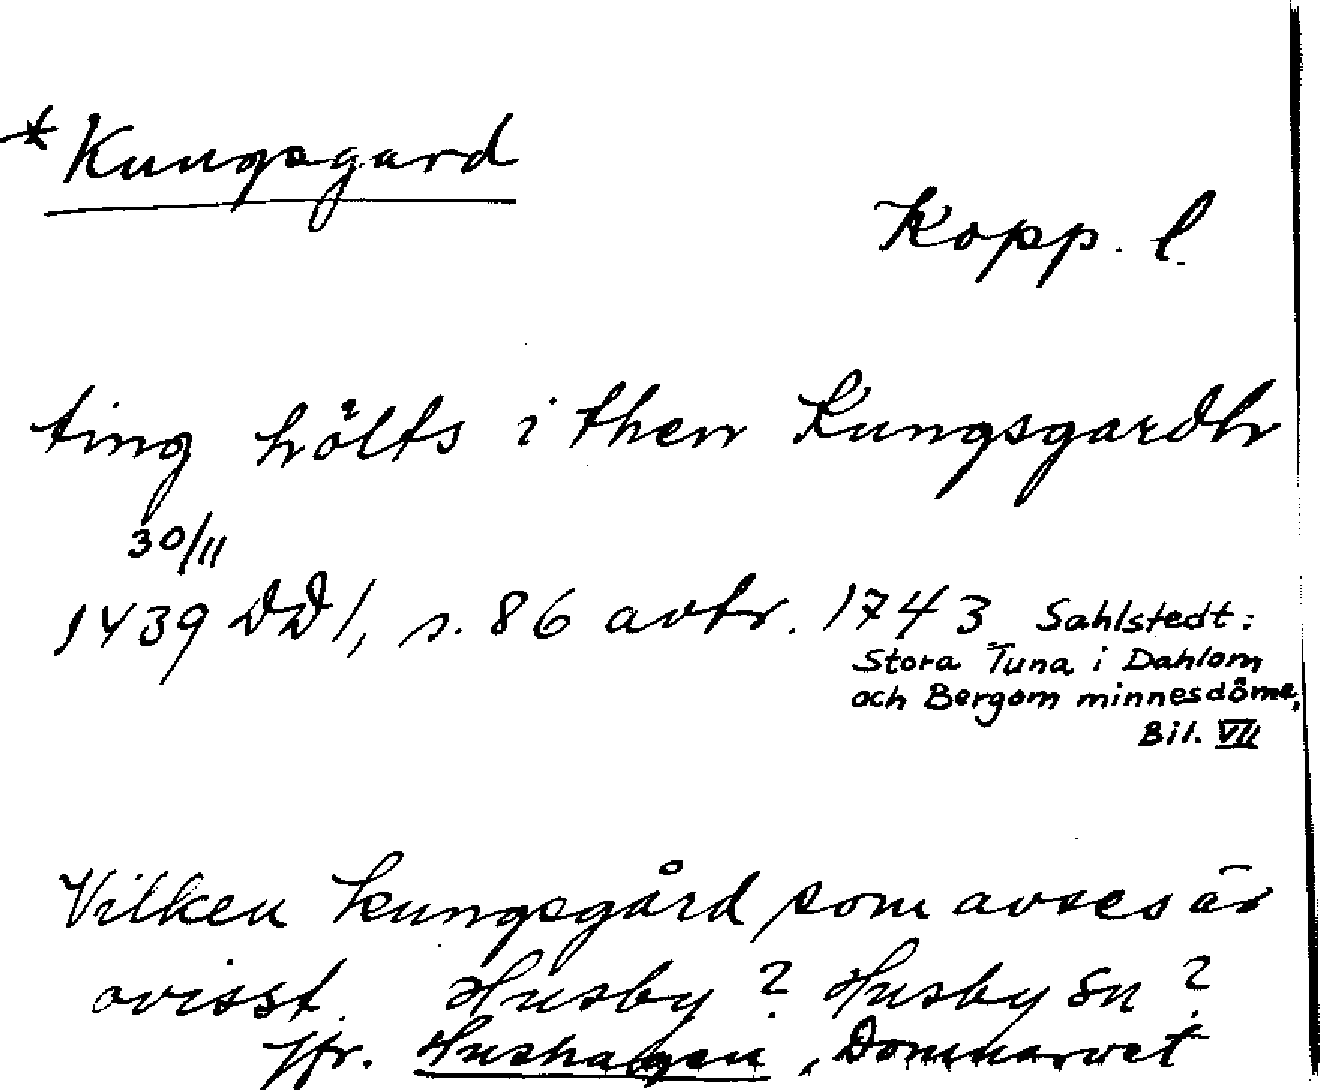 * Kungsgard
Kopp. l.
ting hölts i then Kungsgardh
30/11
1439 DD 1, s. 86 avkr. 1743 Sahlstedt:
Stora Tuna i Dahlom
och Bergom minnesdöme,
Bil. VII
Vilken kungsgård som avses är
ovisst. Husby? Husby sn?
Jfr. Hushagen, Domnarvet